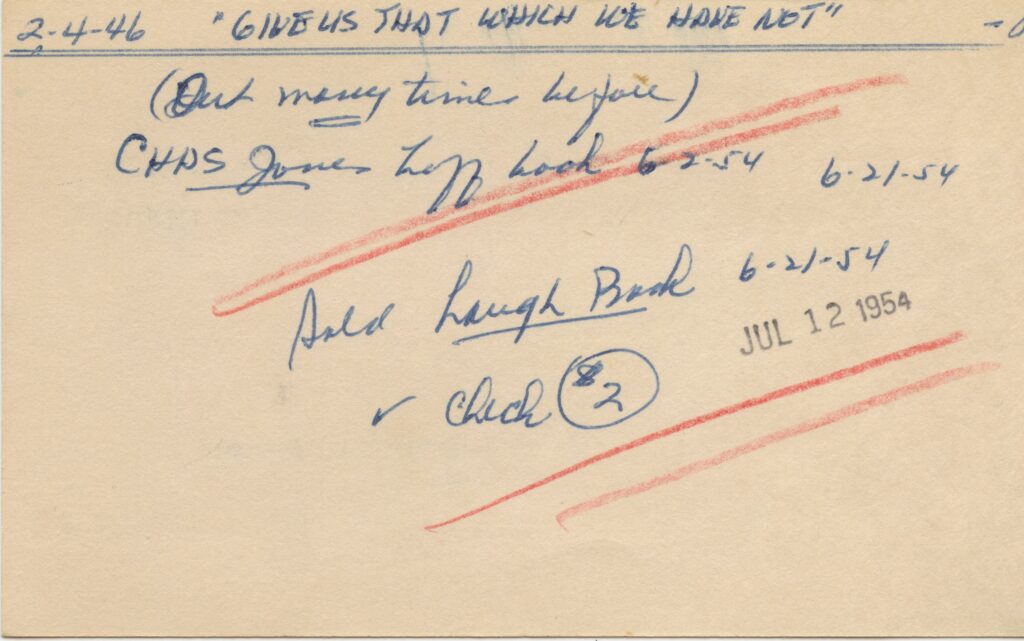 2-4-46 "GIVE US THAT WHICH WE HAVE NOT" -
(Out many times before)
CHAS Jones book 6-2-54 6-21-54
Sold Laugh Book 6-21-54
JUL 12 1954
✓ check $2